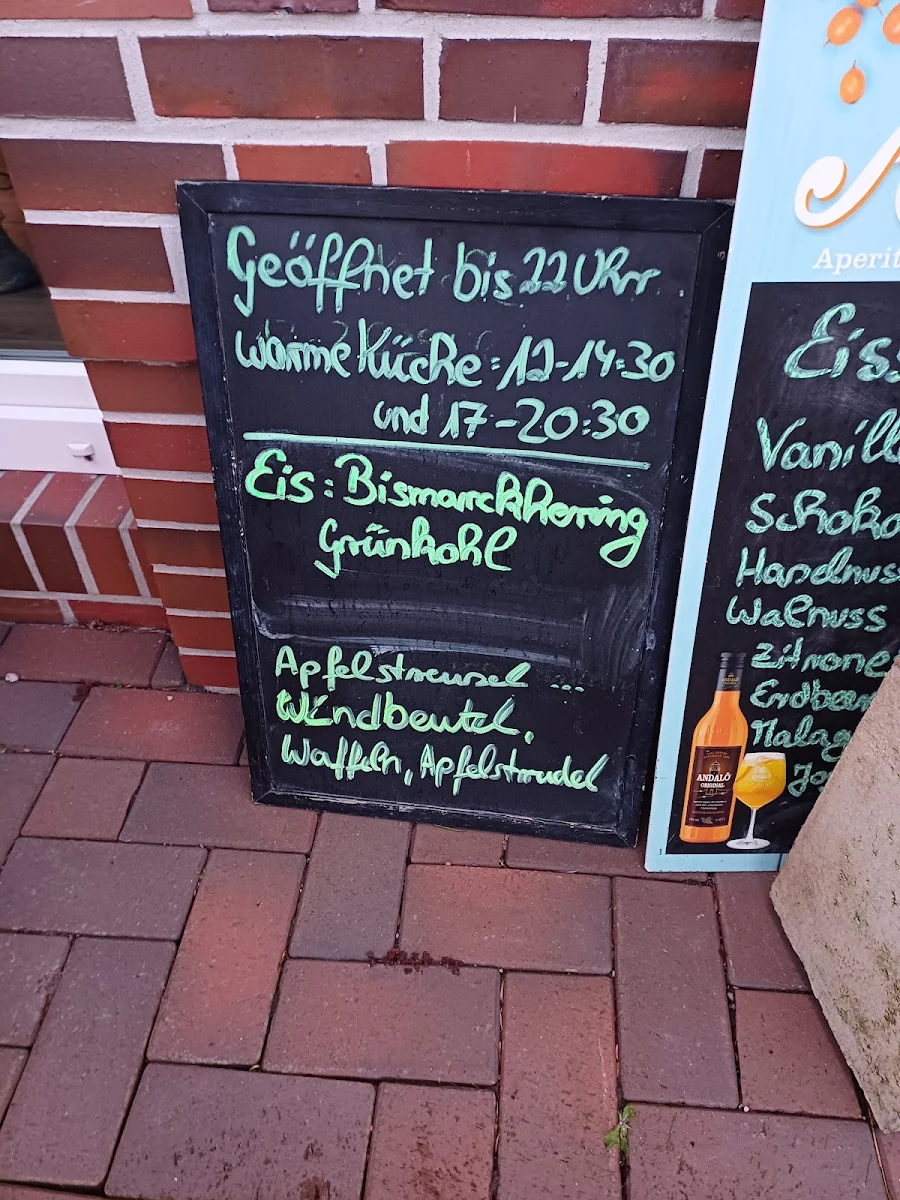 Geöffnet bis 22 Uhr
warme Küche: 12-14:30
und 17-20:30
Eis: Bismarckhering
Grünkohl
Apfelstreusel ...
Windbeutel,
Waffeln, Apfelstrudel
Aperit
Eis
Vanill
Schoko
Haselnuss
Walnuss
Zitrone
Erdbeer
Malag
ANDALÖ
ORIGINAL